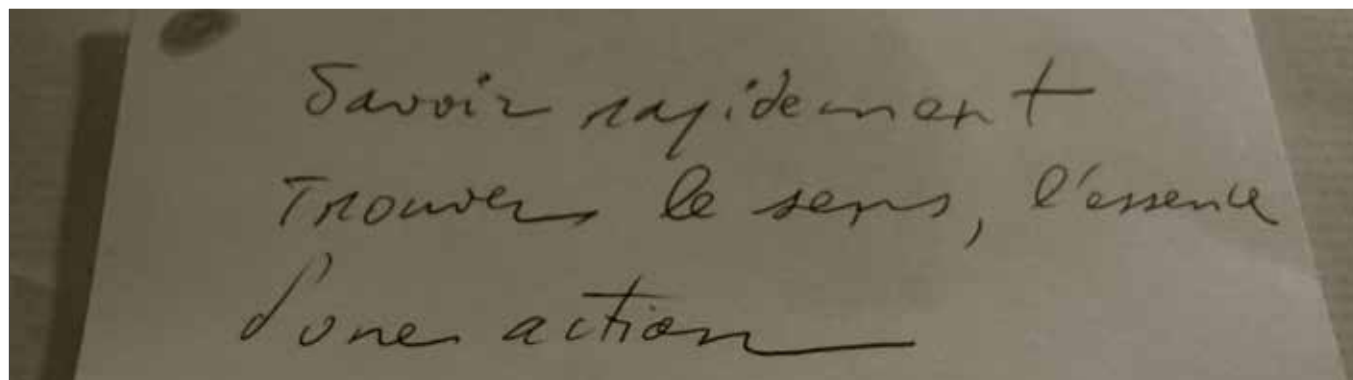 Savoir rapidement
Trouver le sens, l'essence
d'une action